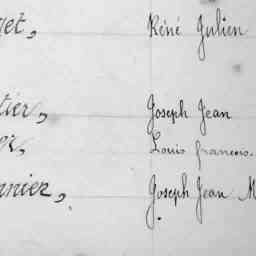 get, Réné Julien
tier, Joseph Jean
er, Louis françois.
nnier, Joseph Jean M